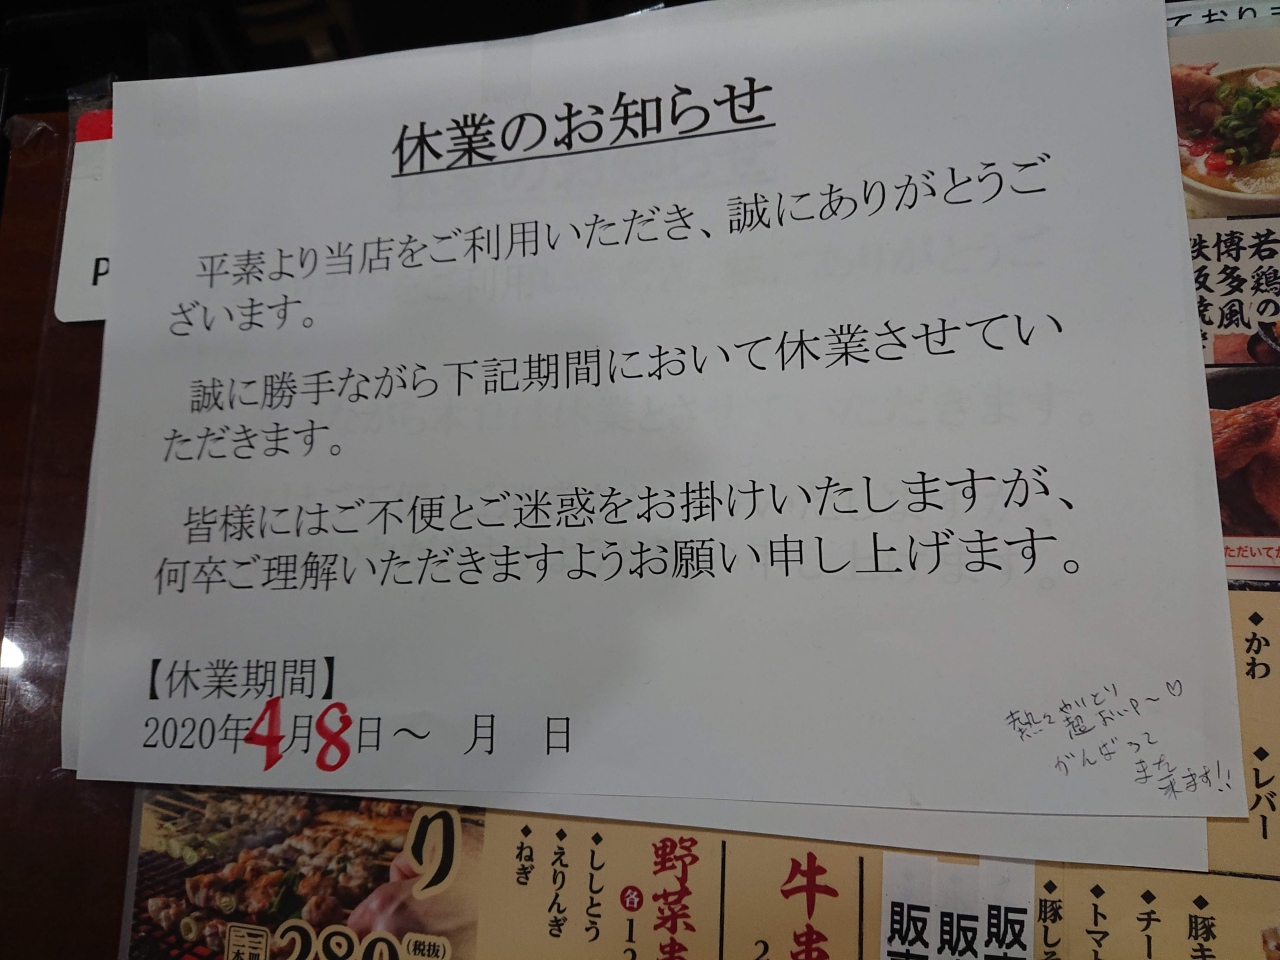 休業のお知らせ
平素より当店をご利用いただき、誠にありがとうご
ざいます。
誠に勝手ながら下記期間において休業させてい
ただきます。
皆様にはご不便とご迷惑をお掛けいたしますが、
何卒ご理解いただきますようお願い申し上げます。
【休業期間】
2020年4月8日～　月　日
超おいP～♡
がんばって
また
来ます!!
P
ております
若鶏の
博多風
かわ
レバー
り
280
(税抜)
◆ししとう
◆えりんぎ
◆ねぎ
野菜串
各
牛串
販
販
販
◆豚し
◆トマト
◆チー
◆豚キ